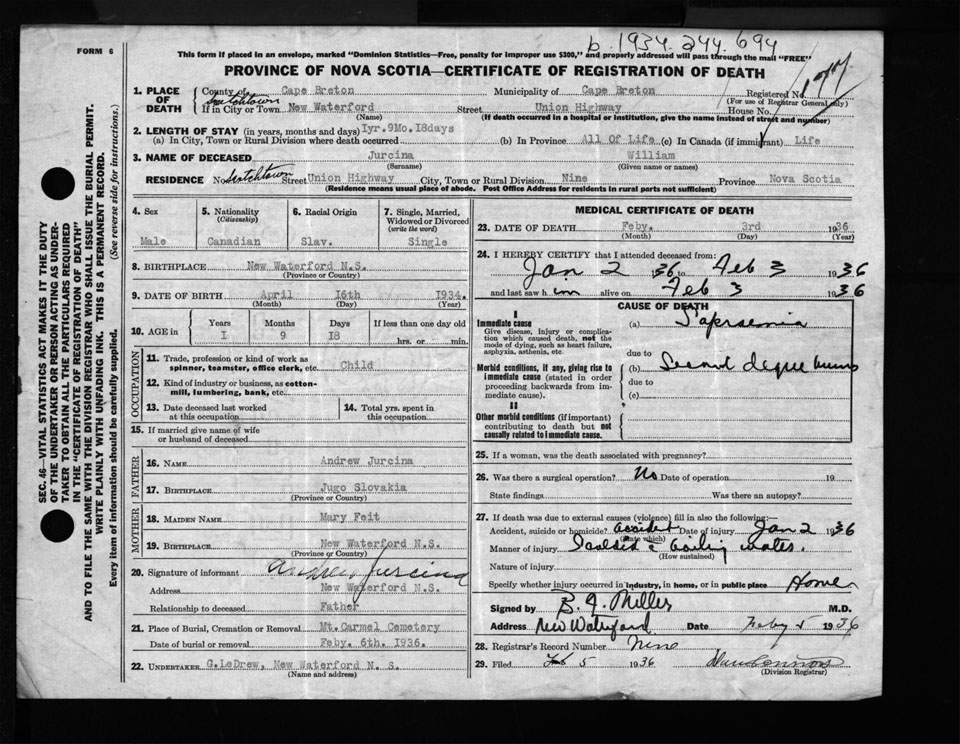 b. 1934. 244. 694
FORM 6
This form if placed in an envelope, marked "Dominion Statistics—Free, penalty for improper use $300," and properly addressed will pass through the mail "FREE"
PROVINCE OF NOVA SCOTIA—CERTIFICATE OF REGISTRATION OF DEATH
1. PLACE OF DEATH
County of Cape Breton Municipality of Cape Breton Registered No.
(For use of Registrar General only)
Scotchtown
If in City or Town New Waterford Street Union Highway House No.
(Name) (If death occurred in a hospital or institution, give the name instead of street and number)
2. LENGTH OF STAY (in years, months and days) 1yr.9Mo.18days
(a) In City, Town or Rural Division where death occurred (b) In Province All Of Life (c) In Canada (if immigrant) Life
3. NAME OF DECEASED Jurcina William
(Surname) (Given name or names)
RESIDENCE No Scotchtown Street Union Highway City, Town or Rural Division Nine Province Nova Scotia
(Residence means usual place of abode. Post Office Address for residents in rural parts not sufficient)
4. Sex
Male
5. Nationality
(Citizenship)
Canadian
6. Racial Origin
Slav.
7. Single, Married, Widowed or Divorced
(write the word)
Single
8. BIRTHPLACE New Waterford N.S.
(Province or Country)
9. DATE OF BIRTH April 16th 1934.
(Month) (Day) (Year)
10. AGE in Years Months Days If less than one day old
1 9 18 hrs. or min.
OCCUPATION
11. Trade, profession or kind of work as
spinner, teamster, office clerk, etc. Child
12. Kind of industry or business, as cotton-
mill, lumbering, bank, etc.
13. Date deceased last worked
at this occupation
14. Total yrs. spent in
this occupation
15. If married give name of wife
or husband of deceased
FATHER
16. NAME Andrew Jurcina
17. BIRTHPLACE Jugo Slovakia
(Province or Country)
MOTHER
18. MAIDEN NAME Mary Feit
19. BIRTHPLACE New Waterford N.S.
(Province or Country)
20. Signature of informant Andrew Jurcina
Address New Waterford N.S.
Relationship to deceased Father
21. Place of Burial, Cremation or Removal Mt.Carmel Cemetery
Date of burial or removal Feby. 6th. 1936.
22. UNDERTAKER G.LeDrew, New Waterford N. S.
(Name and address)
MEDICAL CERTIFICATE OF DEATH
23. DATE OF DEATH Feby. 3rd 1936
(Month) (Day) (Year)
24. I HEREBY CERTIFY that I attended deceased from:
Jan 2 1936 to Feb 3 1936
and last saw h im alive on Feb 3 1936
CAUSE OF DEATH
I
Immediate cause
Give disease, injury or complica-
tion which caused death, not the
mode of dying, such as heart failure,
asphyxia, asthenia, etc.
(a)
due to
Morbid conditions, if any, giving rise to
immediate cause (stated in order
proceeding backwards from im-
mediate cause).
(b) Second degree burns
due to
(c)
II
Other morbid conditions (if important)
contributing to death but not
causally related to immediate cause.
25. If a woman, was the death associated with pregnancy?
26. Was there a surgical operation? No Date of operation 19
State findings Was there an autopsy?
27. If death was due to external causes (violence) fill in also the following:—
Accident, suicide or homicide? Accident Date of injury Jan 2 1936
(State which)
Manner of injury Scalded c boiling water.
(How sustained)
Nature of injury
Specify whether injury occurred in industry, in home, or in public place Home
Signed by B. J. Miller M.D.
Address New Waterford Date Feby 5 1936
28. Registrar's Record Number Nine
29. Filed Feb 5 1936
(Division Registrar)
SEC. 46—VITAL STATISTICS ACT MAKES IT THE DUTY
OF THE UNDERTAKER OR PERSON ACTING AS UNDER-
TAKER TO OBTAIN ALL THE PARTICULARS REQUIRED
IN THE "CERTIFICATE OF REGISTRATION OF DEATH"
AND TO FILE THE SAME WITH THE DIVISION REGISTRAR WHO SHALL ISSUE THE BURIAL PERMIT.
WRITE PLAINLY WITH UNFADING INK. THIS IS A PERMANENT RECORD.
Every item of information should be carefully supplied. (See reverse side for instructions.)